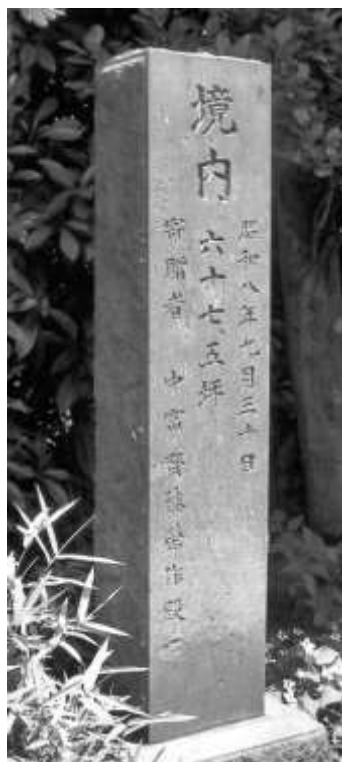 昭和八年九月三十日
境内 六十七、五坪
寄贈者 中宮